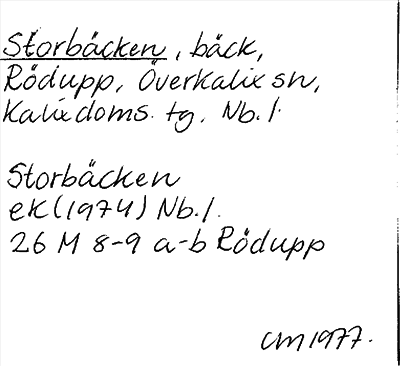 Storbäcken, bäck,
Rödupp, Överkalix sn,
Kalix doms. tg. Nb.l.
Storbäcken
ek (1974) Nb.l.
26 M 8-9 a-b Rödupp
CM 1977.